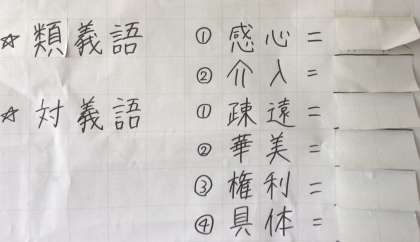 ☆ 類義語 ① 感心 =
② 介入 =
☆ 対義語 ① 疎遠 =
② 華美 =
③ 権利 =
④ 具体 =